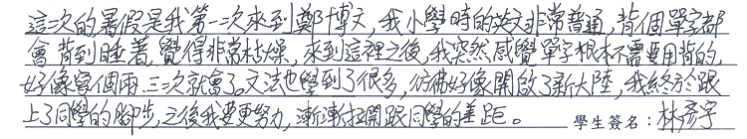 這次的暑假是我第一次來到鄭博文，我小學時的英文非常普通，背個單字都
會背到睡著，覺得非常枯燥，來到這裡之後，我突然感覺單字根本不需要用背的，
好像寫個兩、三次就會了。文法也學到了很多，彷彿好像開啟了新大陸，我終於跟
上了同學的腳步，之後我要更努力，漸漸拉開跟同學的差距。 學生簽名：林彥宇